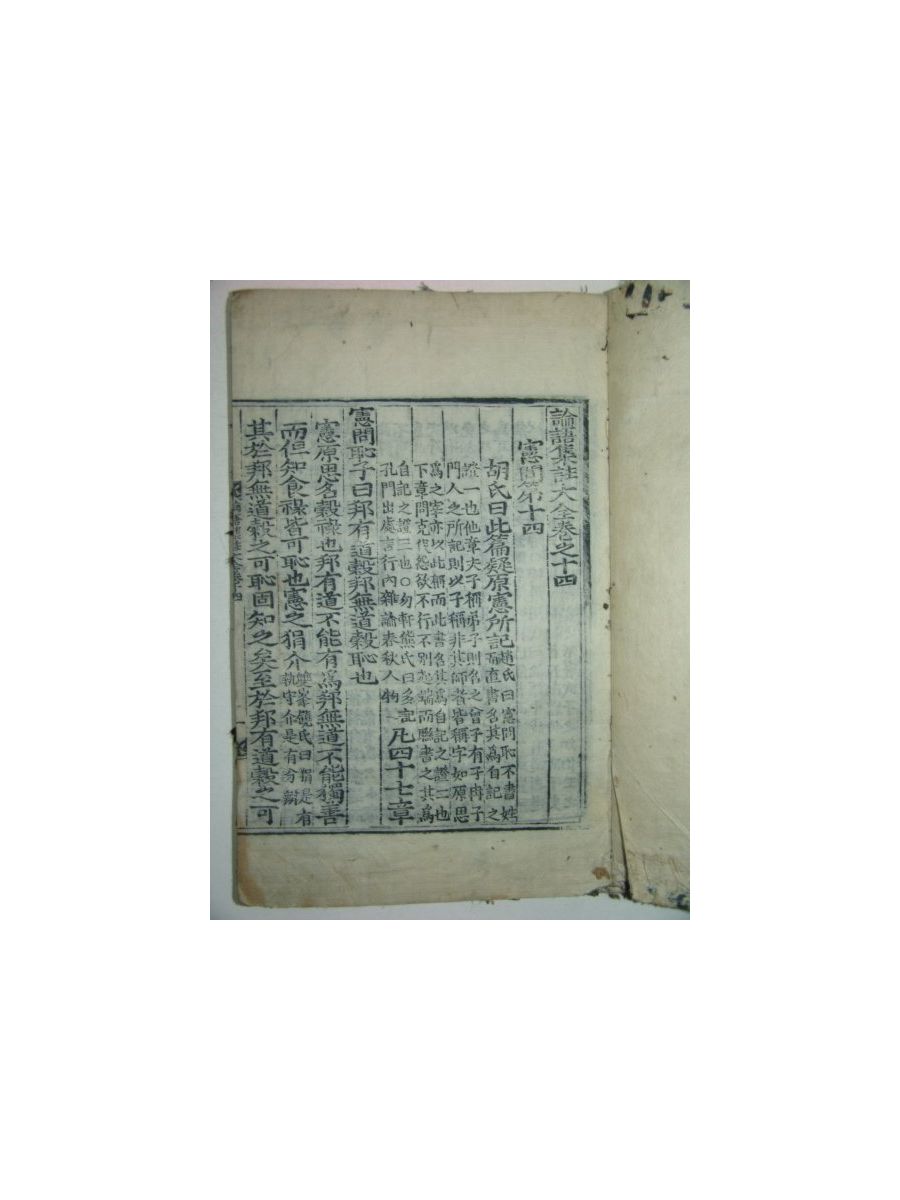 論語集註大全卷之十四
憲問第十四
胡氏曰此篇疑原憲所記趙氏曰憲問恥不書姓
而直書名其爲自記之
證一也他章夫子稱弟子則名之曾子有子冉子
門人之所記則以子稱非其師者皆稱字如原思
爲之宰亦以此稱而此書名其爲自記之證二也
下章問克伐怨欲不行不別起端而聯書之其爲
自記之證三也○勿軒熊氏曰多記
孔門出處言行內雜論春秋人物凡四十七章
憲問恥子曰邦有道穀邦無道穀恥也
憲原思名穀祿也邦有道不能有爲邦無道不能獨善
而但知食祿皆可恥也憲之狷介雙峯饒氏曰狷是有
執守介是有分辨
其於邦無道穀之可恥固知之矣至於邦有道穀之可